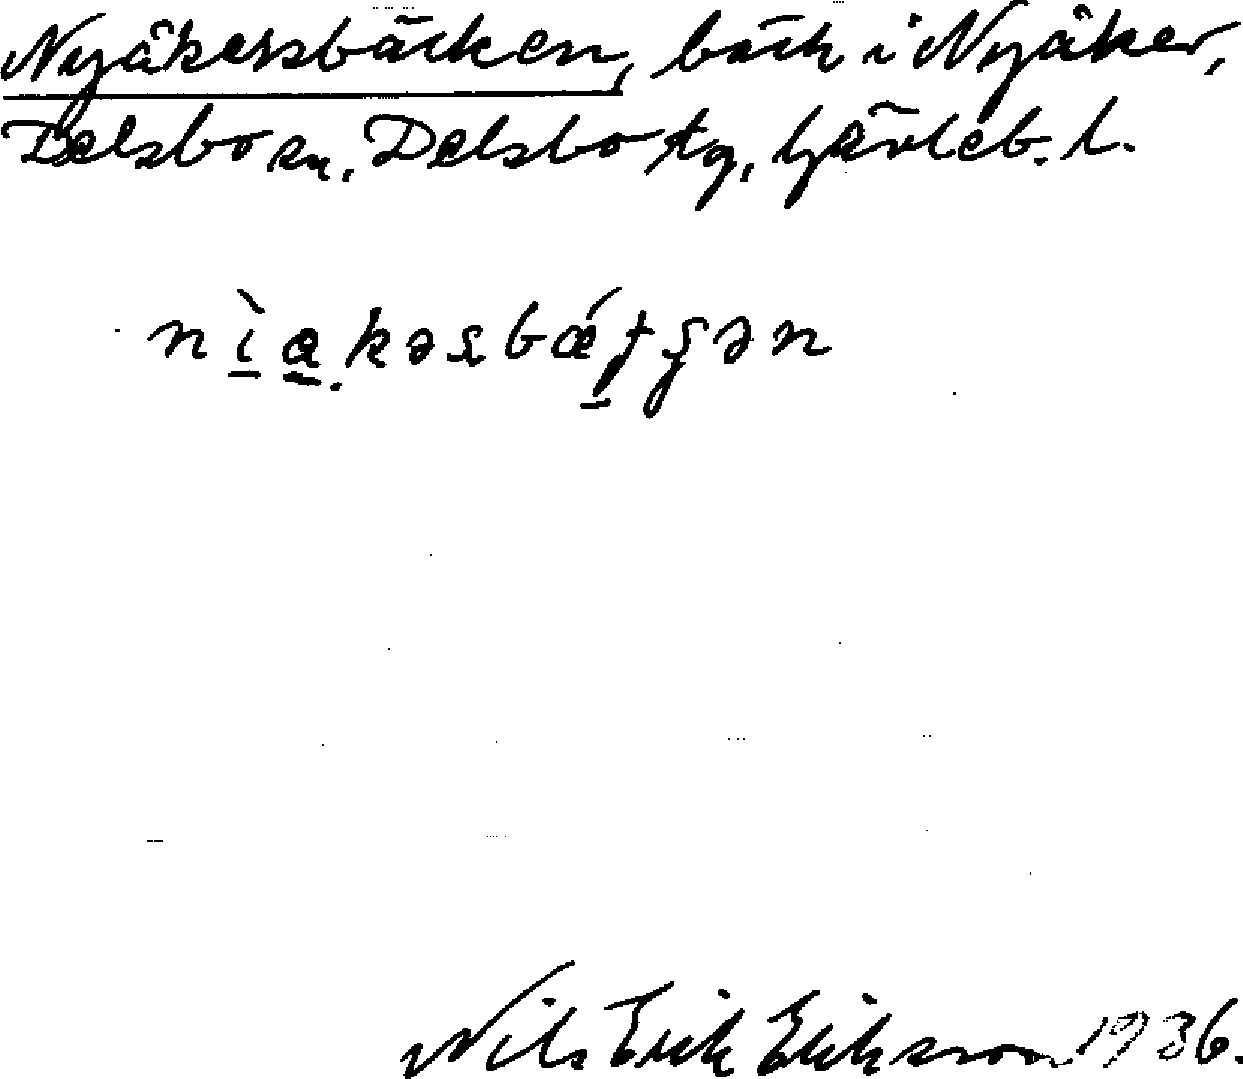 Nyåkersbäcken, bäck i Nyåker,
Delsbo sn, Delsbo tg, Gävleb. l.
Nils Erik Eriksson 1936.